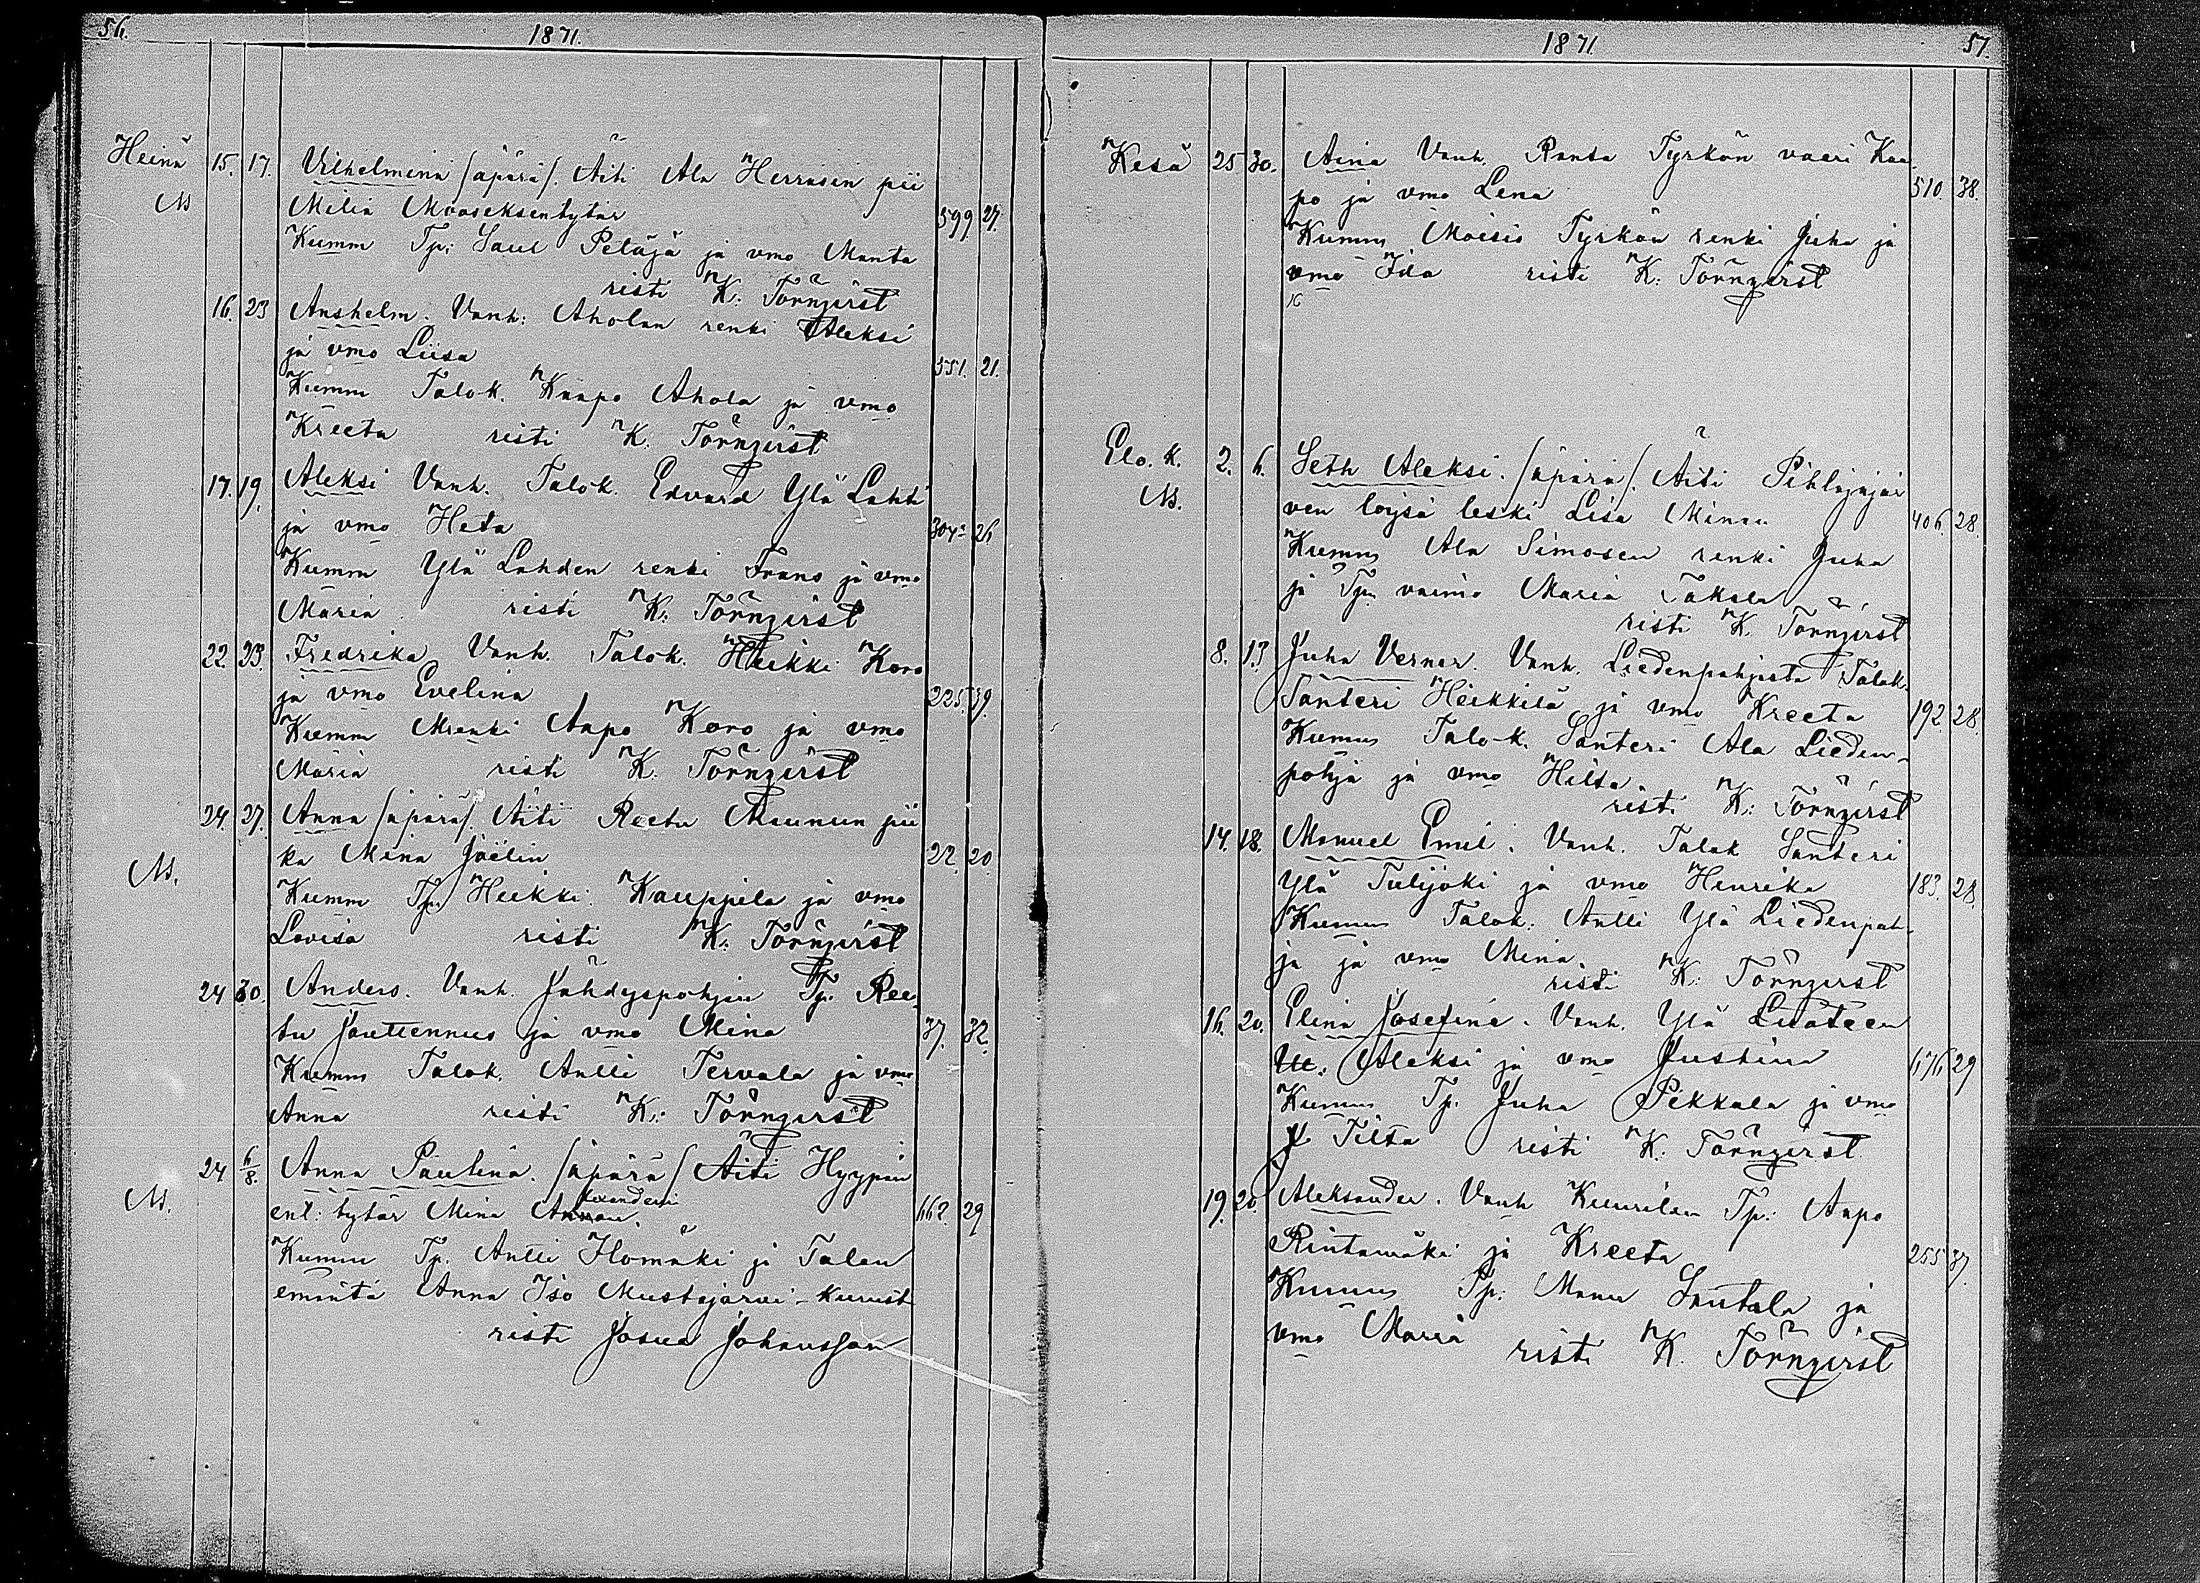 56.
1871.
Heinä 15. 17. Vilhelmina /äpärä/. Äiti Ala Herrasen pii
Ns Milia Mooseksentytär 599 27.
Kumm Tp: Saul Peläjä ja vmo Manta
risti K. Törnqvist
16. 23 Anshelm. Vanh: Aholan renki Aleksi
ja vmo Liisa 551. 21.
Kumm Talok. Kaapo Ahola ja vmo
Kreeta risti K. Törnqvist
17. 19. Aleksi Vanh. Talok. Edvard Ylä Lahti
ja vmo Heta 304 26
Kumm Ylä Lahden renki Frans ja vmo
Maria risti K: Törnqvist
22. 23. Fredrika Vanh. Talok. Heikki Koro
ja vmo Evelina 225. 39.
Kumm Aapo Koro ja vmo
Maria risti K. Törnqvist
24. 27. Anna /äpärä/. Äiti Reetu Maunun pii
Ns. ka Mina Joelin 22. 20.
Kumm Tp. Heikki Kauppila ja vmo
Lovisa risti K: Törnqvist
24 30. Anders. Vanh. Jähdyspohjan Tp. Ree-
tu Joutiennus ja vmo Mina 37. 32.
Kumm Talok. Antti Tervala ja vmo
Anna risti K: Törnqvist
24 6/8. Anna Paulina. /äpärä/ Äiti Hyypän
Ns. enl: tytär Mina 662. 29
Kumm Tp. Antti Ilomäki ja Talon
emäntä Anna Iso Mustajärvi - Kurust
risti Josua Johansson
1871
57.
Kesä 25 30. Aina Vanh. Ranta Tyrkön vaari Kaa-
po ja vmo Lena 510. 38.
Kumm Moisio Tyrkön renki Juha ja
vmo Ida risti K: Törnqvist
Elo. K. 2. 6. Seth Aleksi. /äpärä/. Äiti Pihlajajär
Ns. ven loysä leski Lisa Minan 406. 28.
Kumm Ala Simosen renki Juha
ja Tp. vaimo Maria Takala
risti K. Törnqvist
8. 13 Juha Verner. Vanh. Liedenpohjasta Talok.
Santeri Heikkilä ja vmo Kreeta 192. 28.
Kumm Talo-k. Santeri Ala Lieden-
pohja ja vmo Hilta
risti K: Törnqvist
14. 18. Manuel Emil. Vanh. Talok Santeri
Ylä Tulijoki ja vmo Henrika 183. 28.
Kumm Talok. Antti Ylä Liedenpoh-
ja ja vmo Mina.
risti K: Törnqvist
16. 20. Elina Josefina. Vanh. Ylä
Aleksi ja vmo Justina 676 29
Kumm Tp. Juha Pekkala ja vmo
Tilta risti K. Törnqvist
19. 20. Aleksander. Vanh Kuurilan Tp: Aapo
Rintamäki ja Kreeta 255 37.
Kumm Tp. Manu Sautala ja
vmo Maria
risti K. Törnqvist